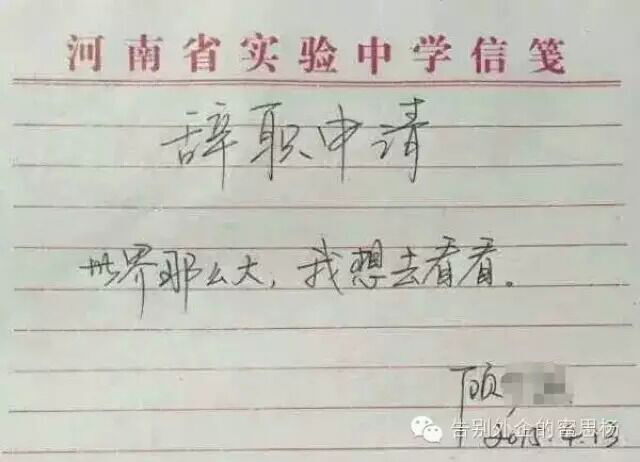 河南省实验中学信笺
辞职申请
世界那么大，我想去看看。
顾
2015.4.13
告别外企的密思杨